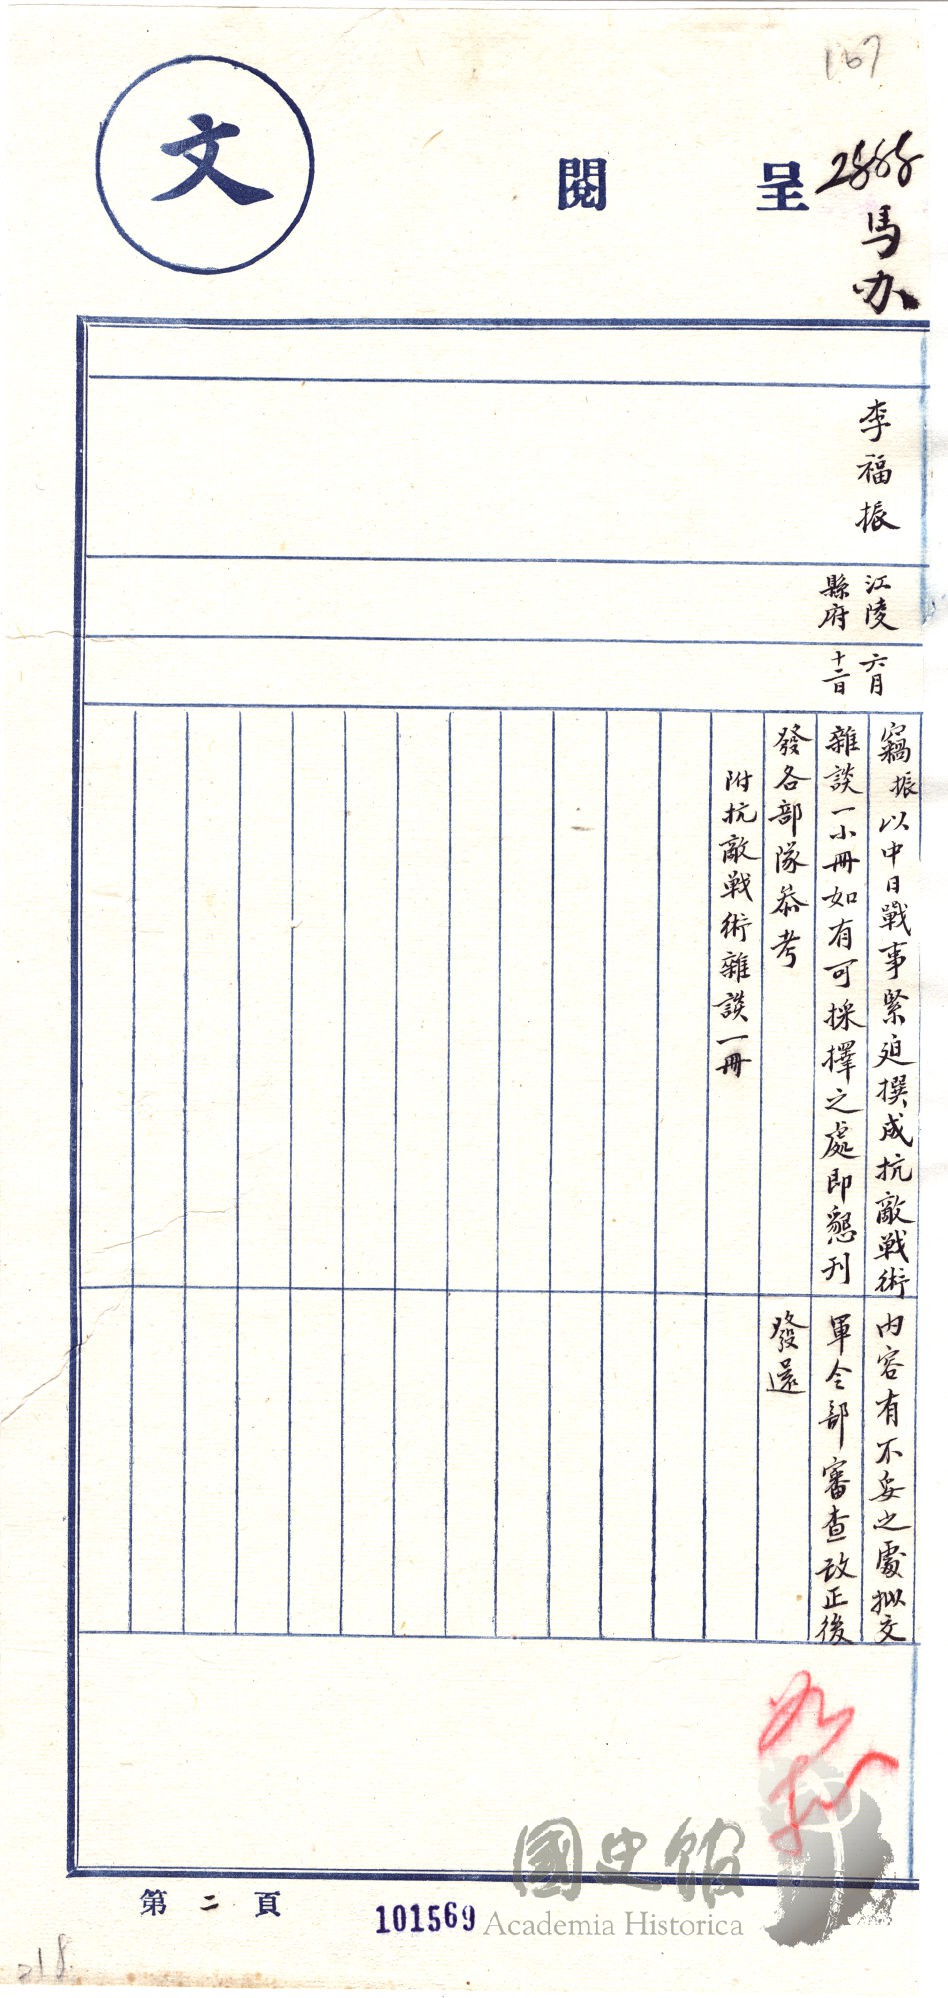 167
呈閱
文
2888
馬办
李福振
江陵
縣府
六月
十二日
竊振以中日戰事緊迫撰成抗敵戰術
雜談一小冊如有可採擇之處即懇刊
發各部隊叅考
附抗敵戰術雜談一冊
內容有不妥之處擬交
軍令部審查改正後
發還
第二頁
101569
國史館
Academia Historica
218